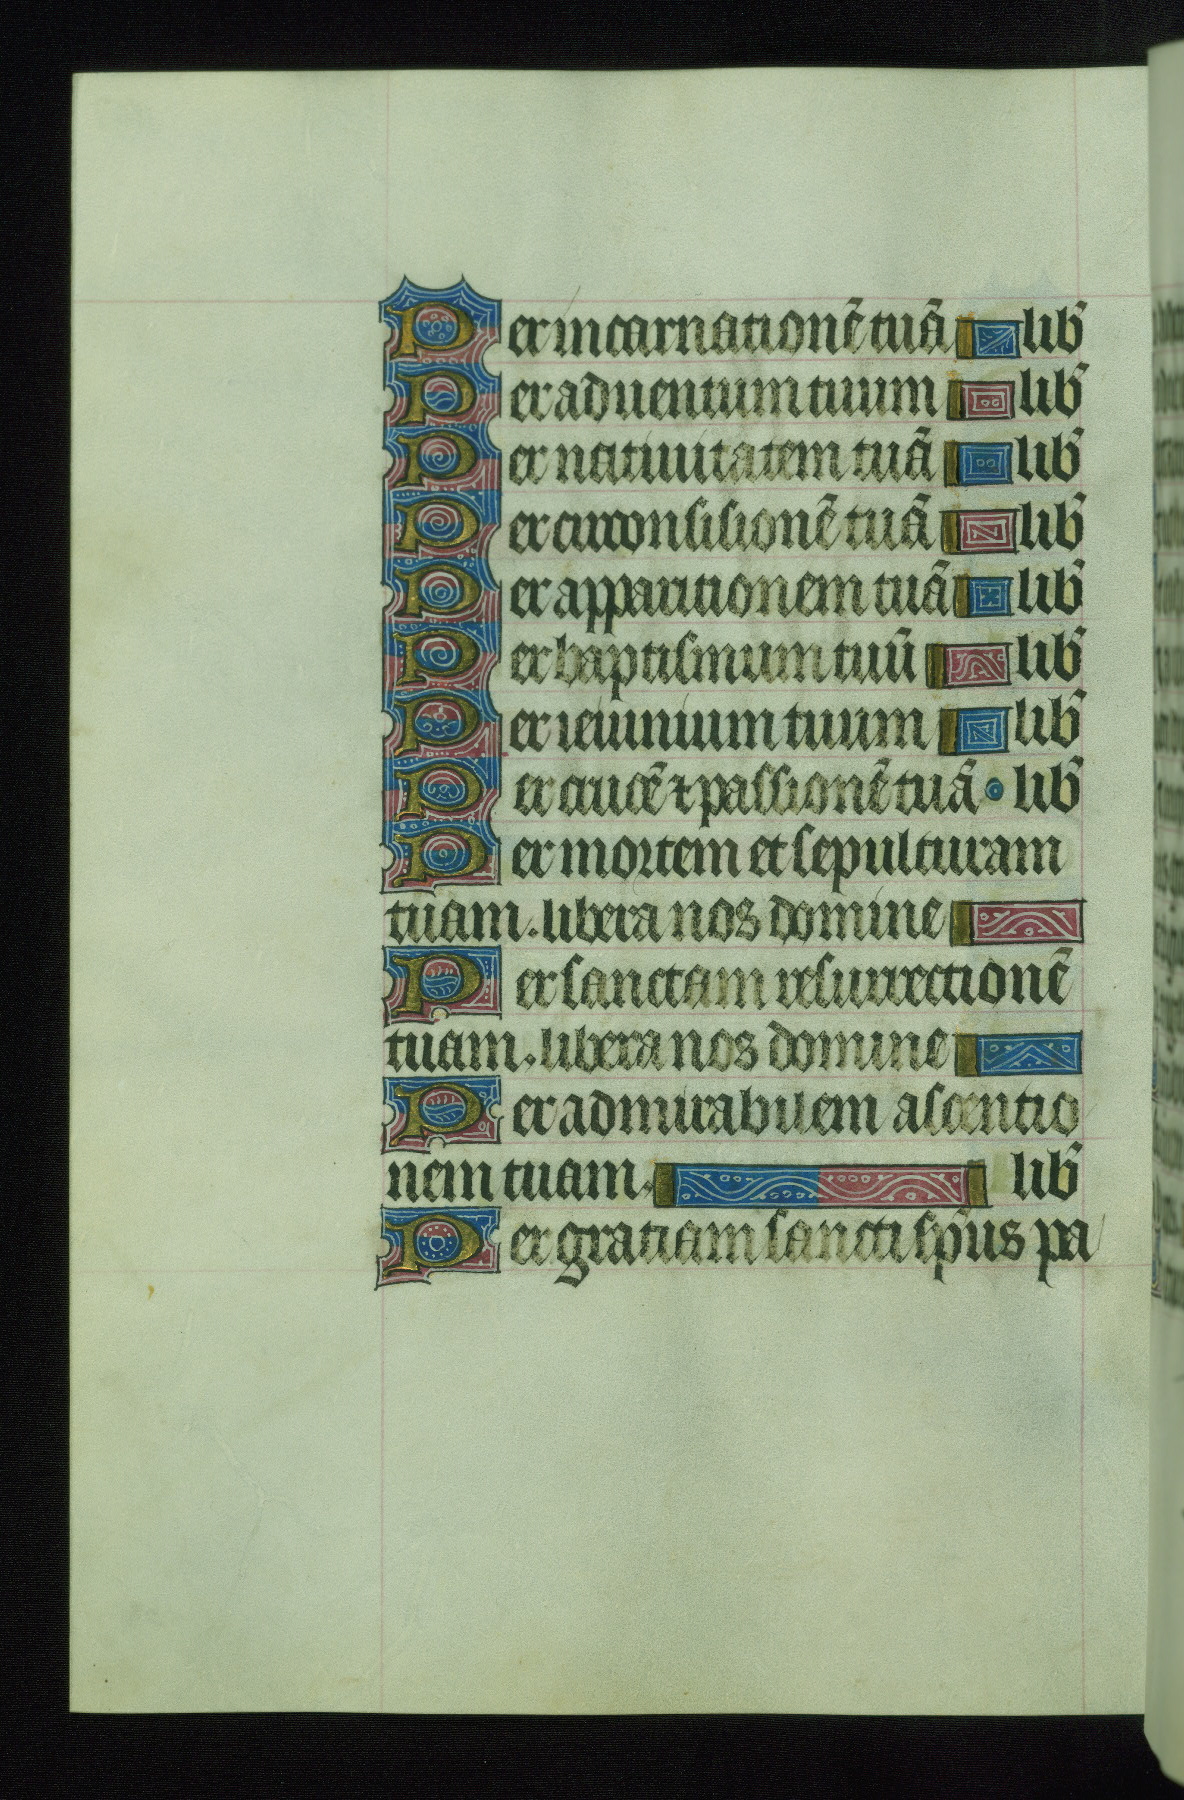 Per incarnationē tuā lib̄
Per aduentum tuum lib̄
Per natiuitatem tuā lib̄
Per circonsisionē tuā lib̄
Per apparitionem tuā lib̄
Per baptismum tuū lib̄
Per ieiunium tuum lib̄
Per crucē ⁊ passionē tuā lib̄
Per mortem et sepulturam
tuam. libera nos domine
Per sanctam resurrectionē
tuam. libera nos domine
Per admirabilem ascentio
nem tuam. lib̄
Per gratiam sancti sp̄us pa